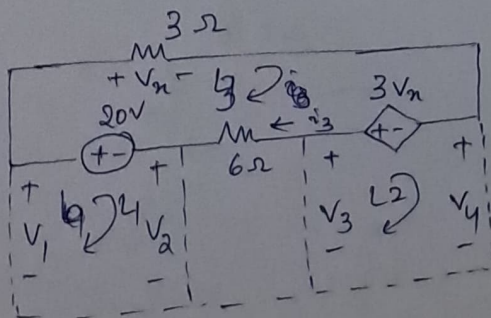 3 Ω
+ Vx -
L3
3Vx
20V
+ -
i3
+ -
6Ω
+ + + +
V1 L1 V2 V3 L2 V4
- - - -